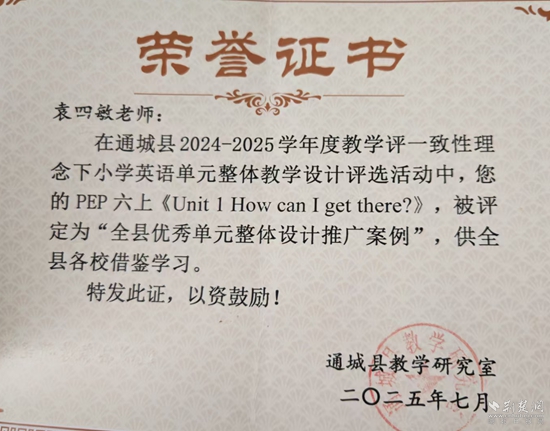 荣誉证书
袁四敏老师：
在通城县2024-2025学年度教学评一致性理
念下小学英语单元整体教学设计评选活动中，您
的PEP六上《Unit 1 How can I get there?》，被评
定为“全县优秀单元整体设计推广案例”，供全
县各校借鉴学习。
特发此证，以资鼓励！
通城县教学研究室
二〇二五年七月
荆楚网